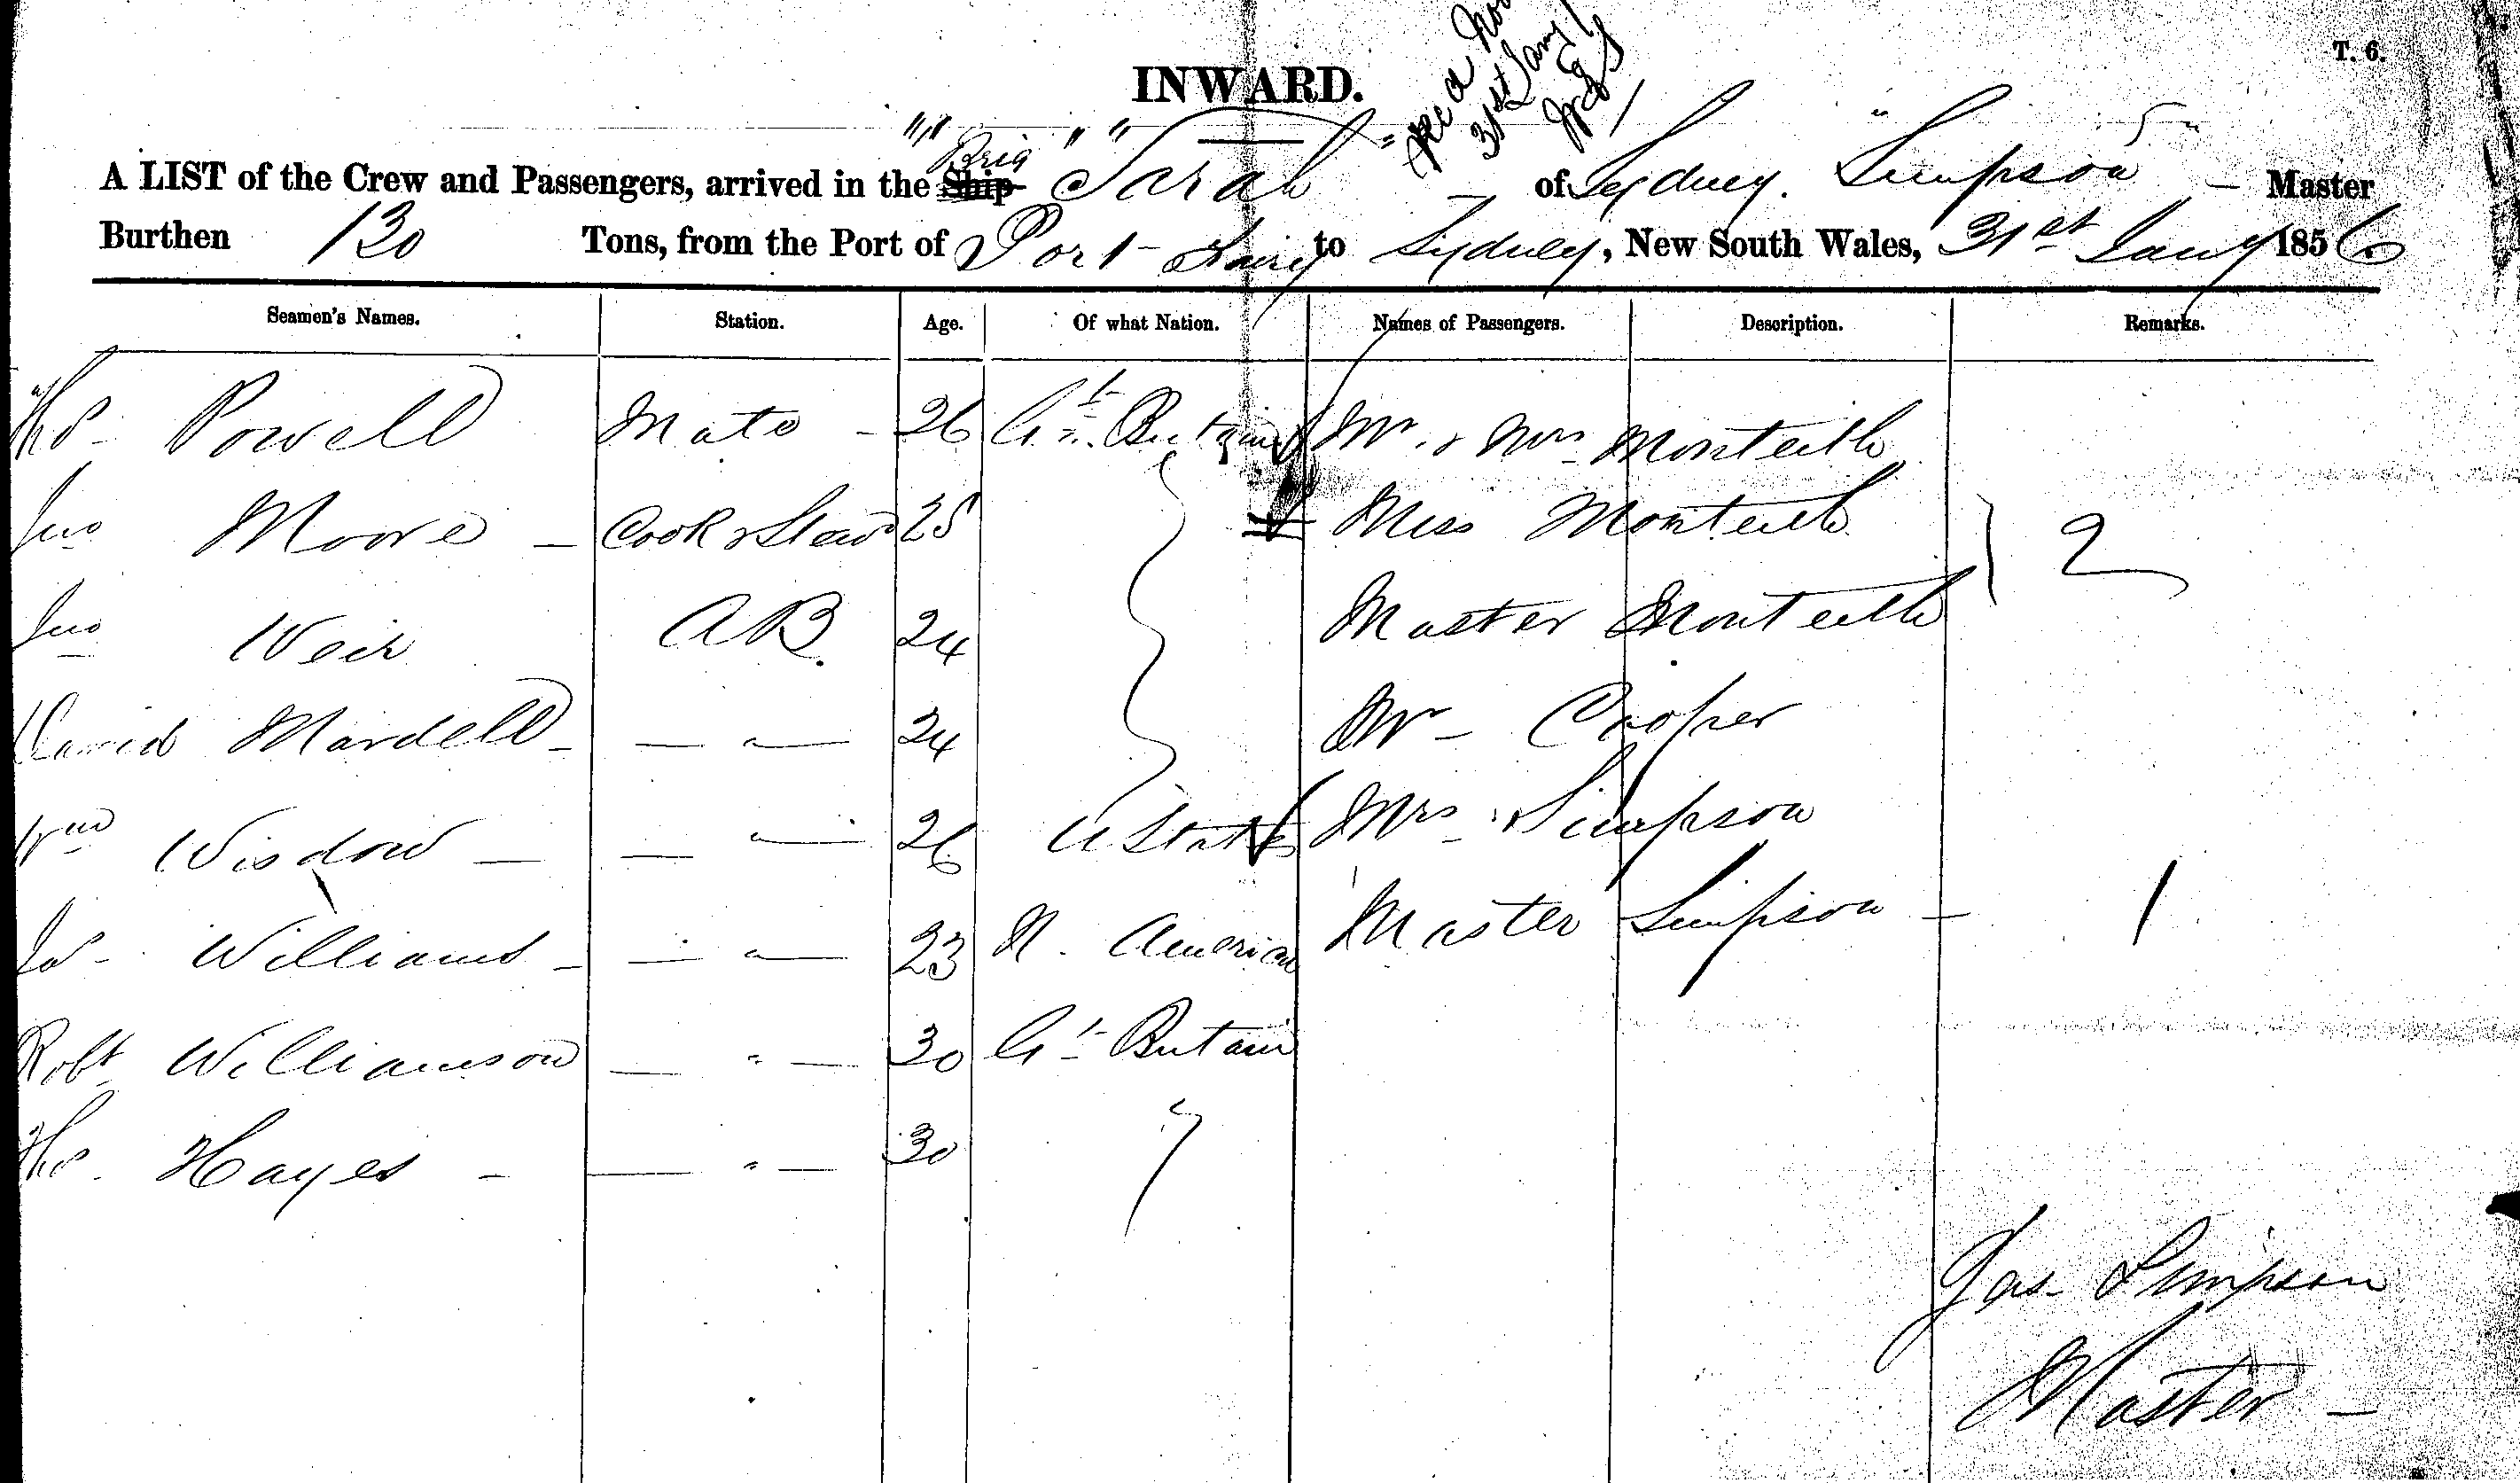 T. 6.
INWARD.
31st Jany
Brig
A LIST of the Crew and Passengers, arrived in the Ship "Sarah" of Sydney. "Simpson" Master
Burthen 130 Tons, from the Port of Port Fairy to Sydney, New South Wales, 31st Jany 1856
Seamen's Names. Station. Age. Of what Nation. Names of Passengers. Description. Remarks.
Thos Powell Mate 26 Gt Britain Mr & Mrs Monteith
Jno Moore Cook & Stewd 25 Miss Monteith 2
Jno Weir AB. 24 Master Monteith
David Mardell " 24 Mr Cooper
Wm Wisdow " 26 U States Mrs Simpson
Js Williams " 23 N. America Master Simpson 1
Robt Williamson " 30 Gt Britain
Thos Hayes " 30
Jas Simpson
Master